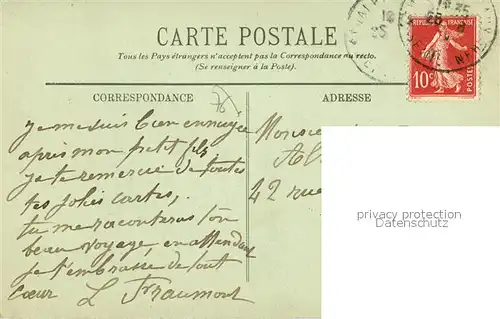 CARTE POSTALE
Tous les Pays étrangers n'acceptent pas la Correspondance au recto.
(Se renseigner à la Poste).
REPUBLIQUE FRANÇAISE
10c
CORRESPONDANCE
ADRESSE
je me suis bien ennuyée
après mon petit fils
je te remercie de toutes
tes jolies cartes,
tu me raconteras ton
beau voyage, en attendant
je t'embrasse de tout
cœur L Fraumont
Monsieu
42 rue
privacy protection
Datenschutz